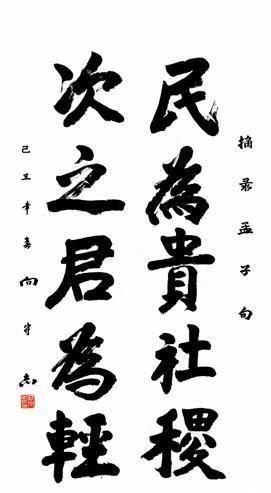 摘录孟子句
民為貴社稷
次之君為輕
己丑年春向守志